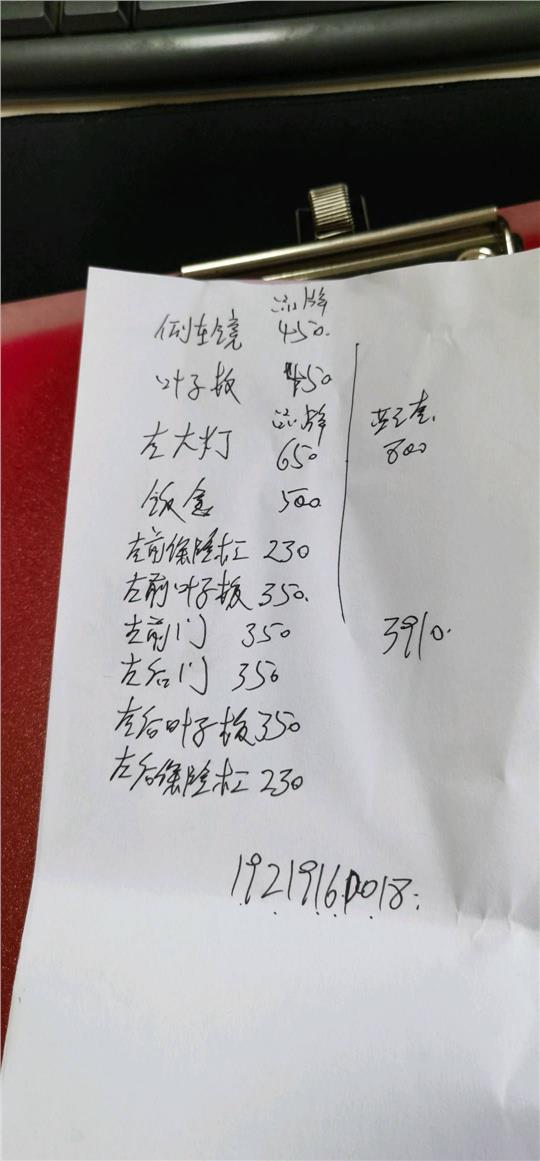 品牌
倒车镜 450.
叶子板 450
品牌
左大灯 650
钣金 500
左前保险杠 230
左前叶子板 350.
左前门 350
左后门 350
左后叶子板 350
左后保险杠 230
800
3910.